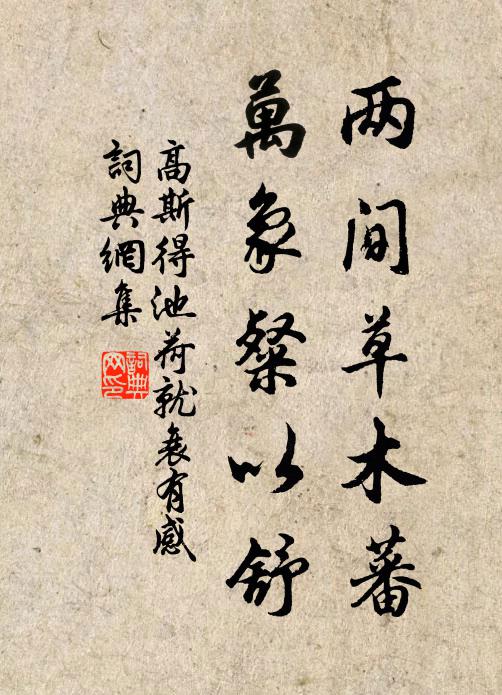 两間草木蕃
萬象粲以舒
高斯得池荷就衰有感
詞典網集
詞典
网印